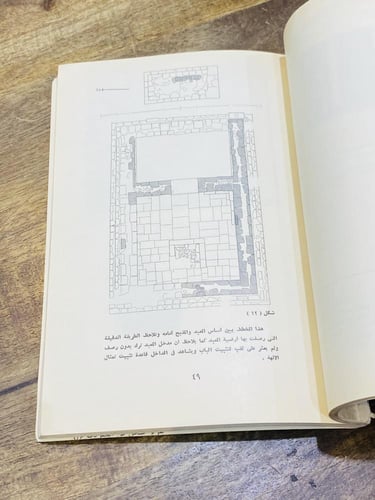 شكل (١٢)
هذا المخطط يبين اساس المعبد والمذبح أمامه ونلاحظ الطريقة الدقيقة
التي رصفت بها ارضية المعبد كما يلاحظ ان مدخل المعبد ترك بدون رصف
ولم يعثر على ثقب لتثبيت الباب ويشاهد في الداخل قاعدة لتثبيت تمثال
الالهة .
٤٩